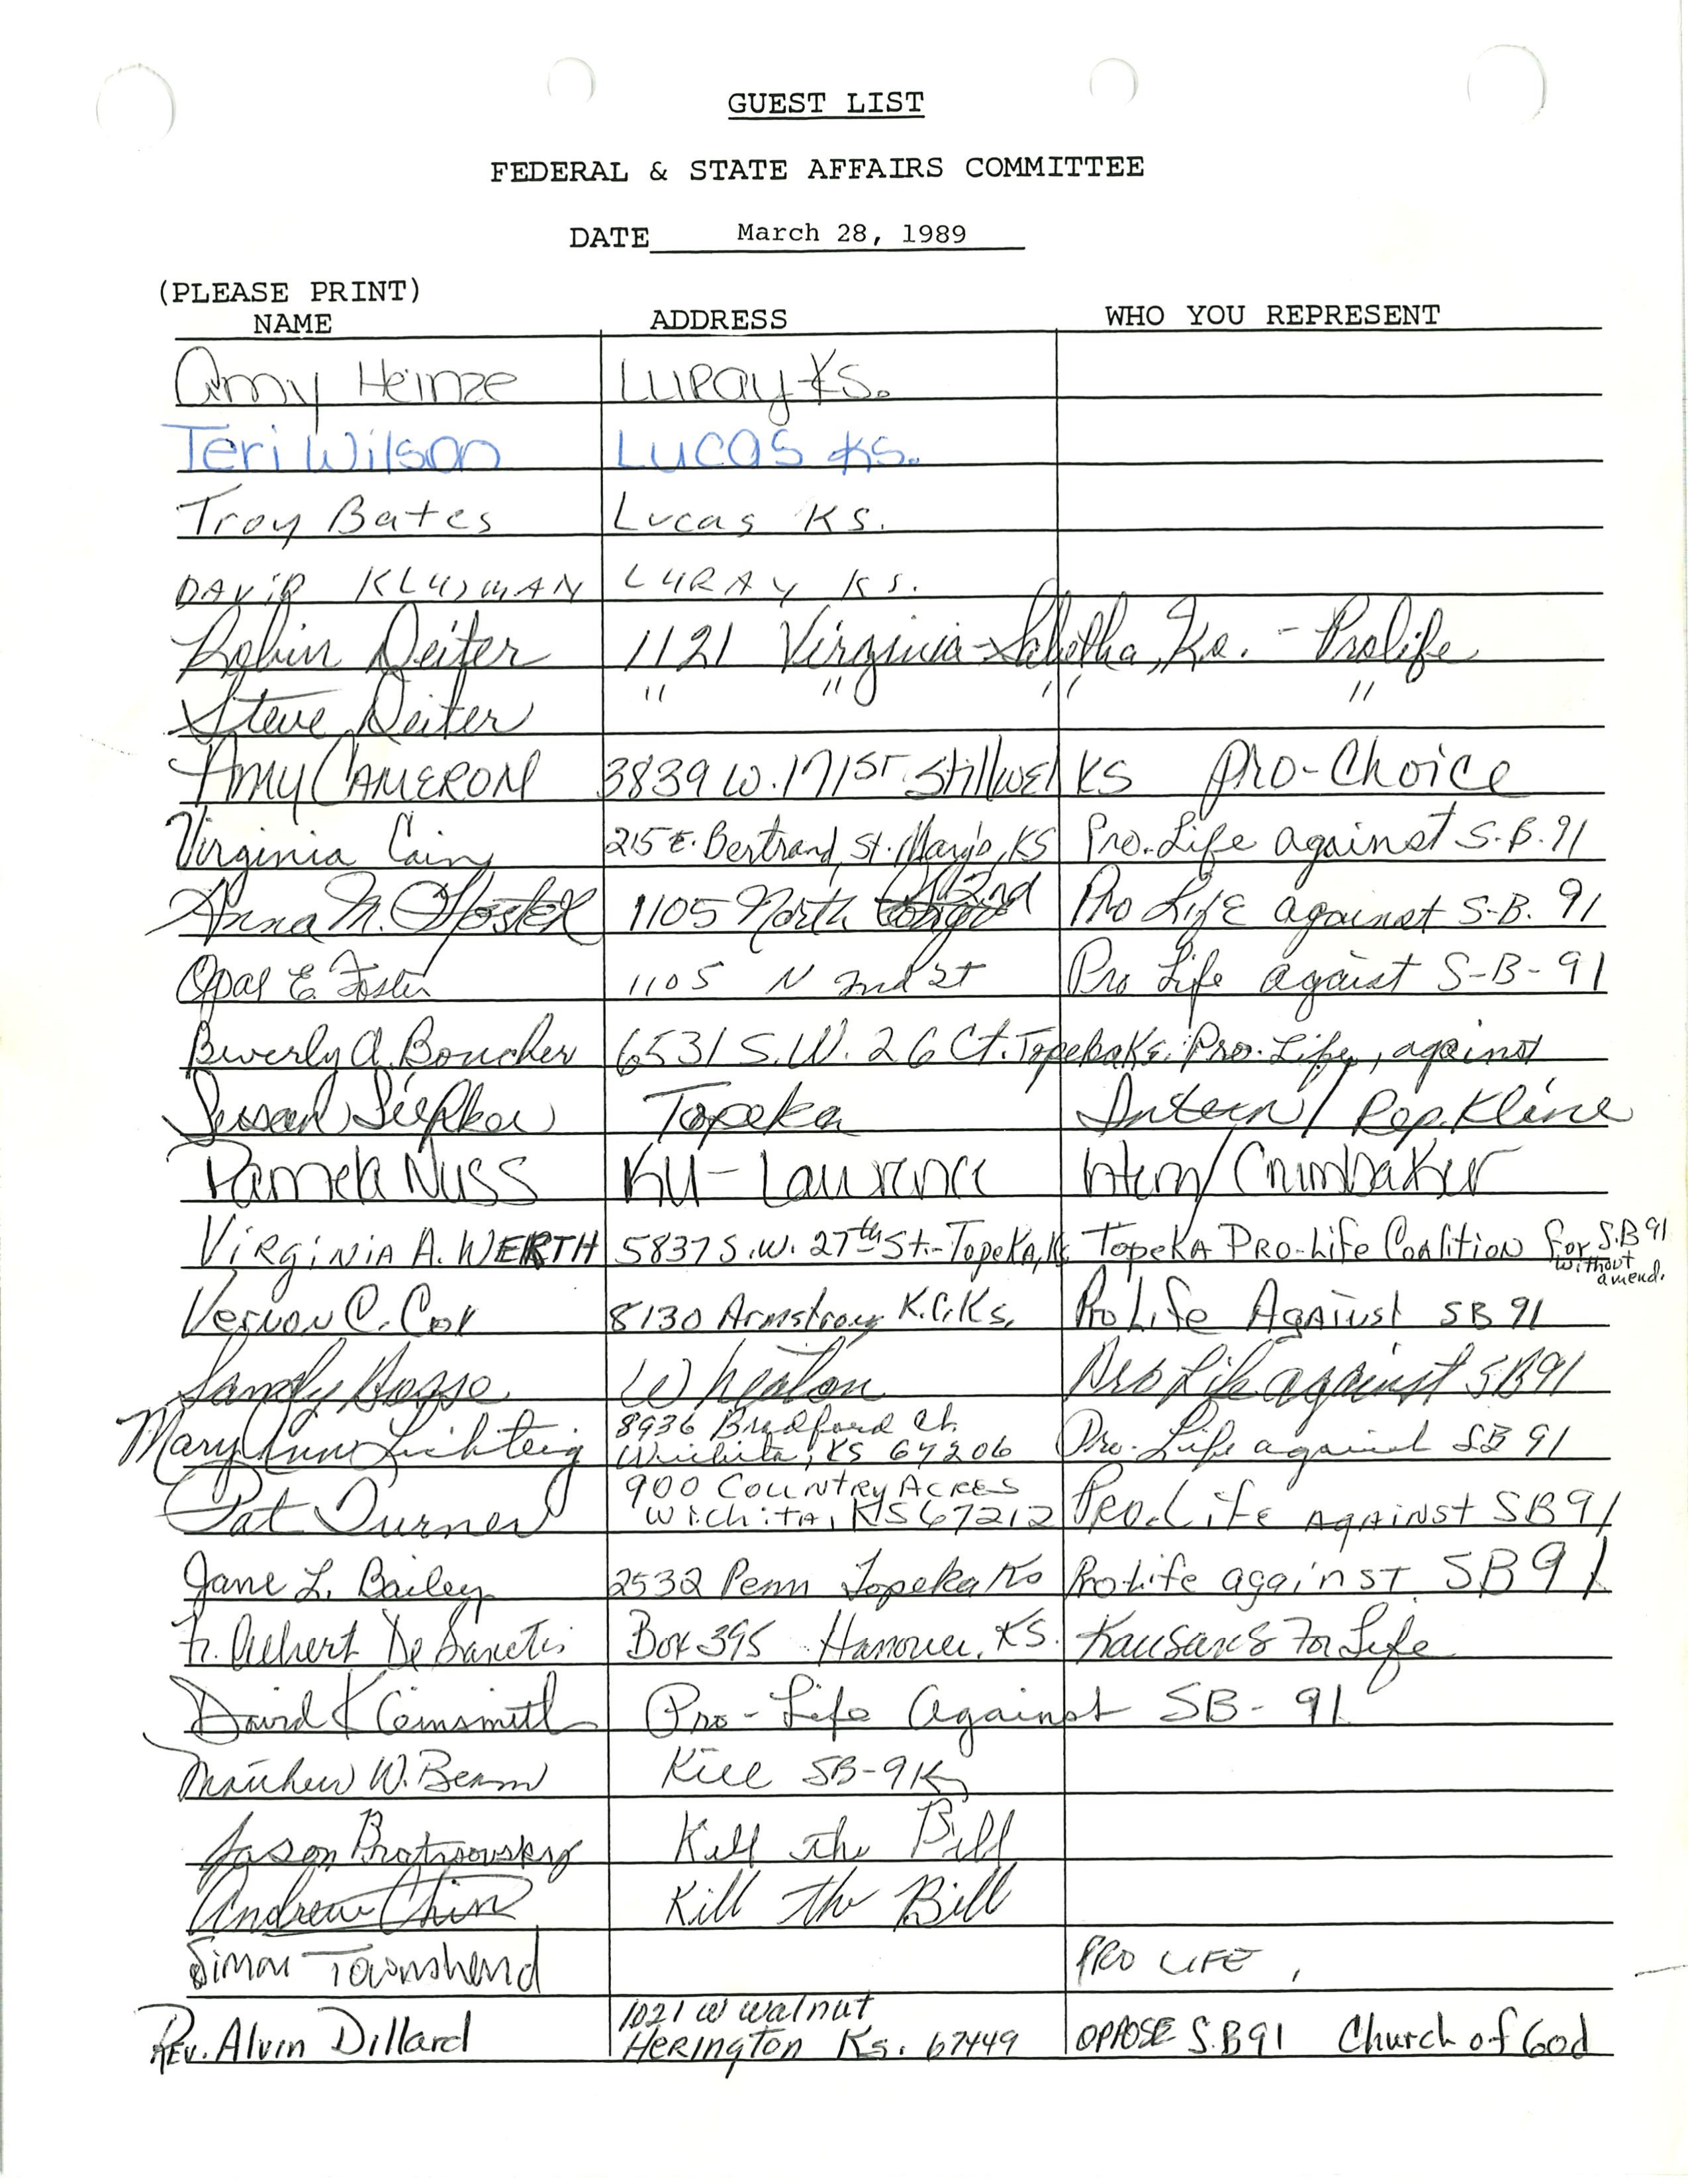 GUEST LIST
FEDERAL & STATE AFFAIRS COMMITTEE
DATE March 28, 1989
(PLEASE PRINT)
NAME ADDRESS WHO YOU REPRESENT
Amy Heinze Luray Ks.
Teri Wilson Lucas Ks.
Troy Bates Lucas KS.
DAVID KLUSMAN LURAY KS.
Robin Deiter 1121 Virginia - Sabetha, Ks. - Prolife
Steve Deiter " " " "
AMY CAMERON 3839 W. 171st. Stillwel KS Pro-Choice
Virginia Cain 215 E. Bertrand, St. Marys, KS Pro-Life against S.B.91
Anna M. 1105 North 2nd Pro Life against S-B. 91
Opal E. Foster 1105 N 2nd St Pro Life against S-B-91
Beverly A. Boucher 6531 S.W. 26 Ct. Topeka Ks. Pro-Life, against
Susan Topeka Intern/Rep. Kline
Pamela Nuss KU-Lawrence Intern/Crumbaker
VIRGINIA A. WERTH 5837 S.W. 27th St.-TopeKA, K TopeKA PRO-Life Coalition for S.B 91
without
amend.
Vernon C. Cox 8130 Armstrong K.C. Ks. Pro Life Against SB 91
Sandy Wheaton Pro Life against SB91
Mary Ann Lichteig 8936 Bradford Ct. Pro-Life against SB 91
Wichita, KS 67206
Pat Turner 900 Country Acres Pro-Life against SB 91
Wichita, KS 67212
Jane L. Bailey 2532 Penn Topeka Ks Pro Life against SB 91
Fr. Albert DeSanctis Box 395 Hanover, KS. Kansans For Life
David Pro-Life Against SB-91
Matthew W. Beam Kill SB-91
Jason Kill the Bill
Andrew Chin Kill the Bill
Simon Townshend PRO LIFE,
Rev. Alvin Dillard 1021 W Walnut OPPOSE S.B91 Church of God
Herington Ks. 67449